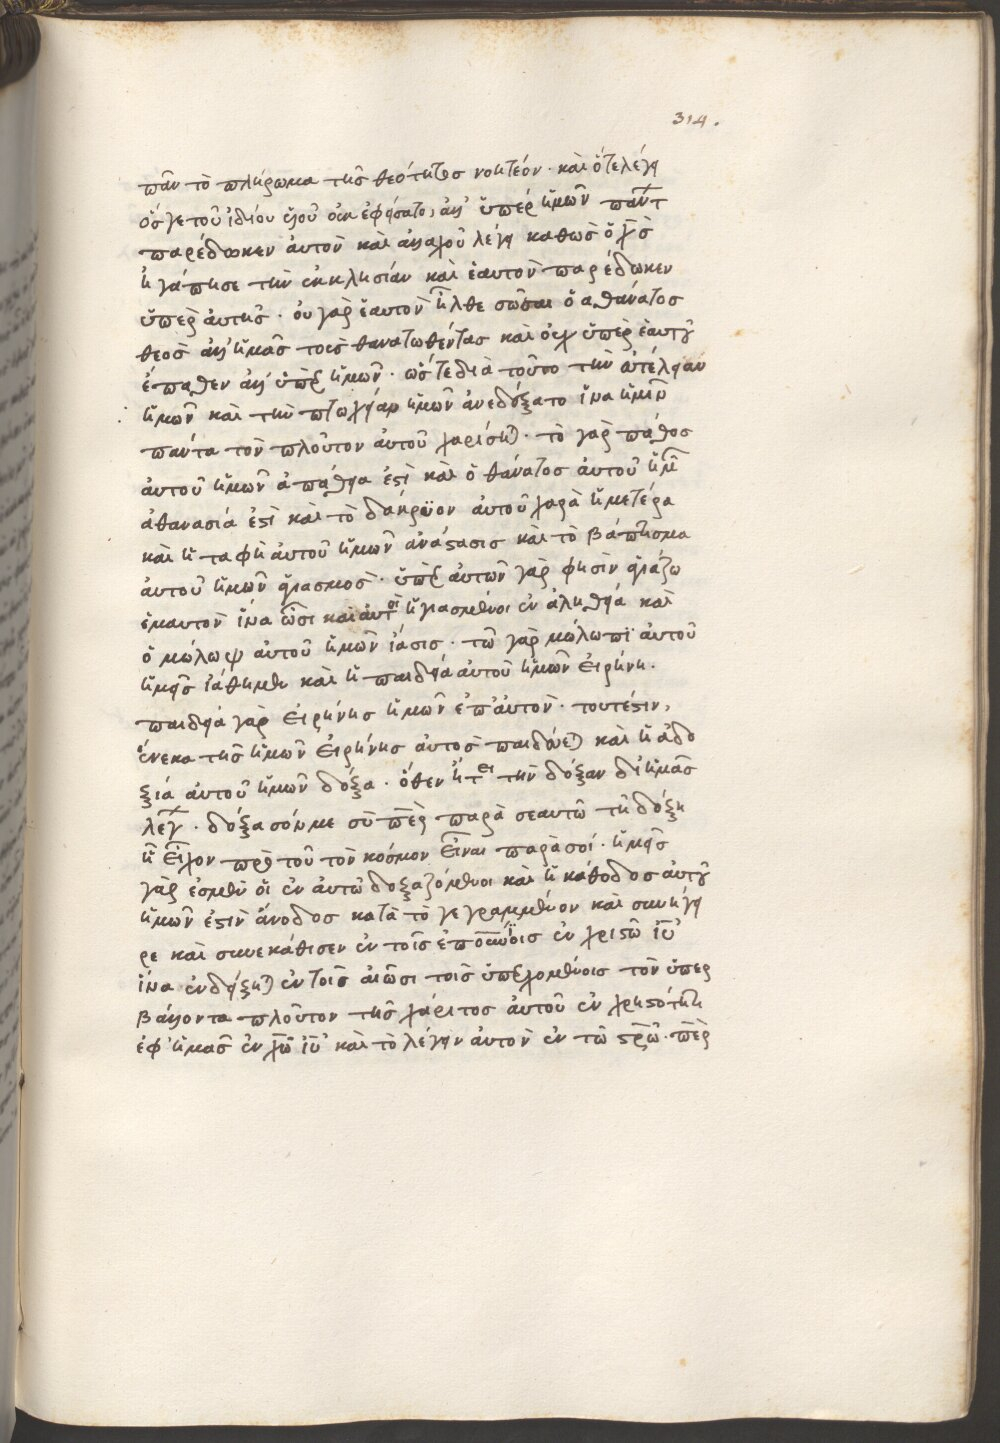 314.
πᾶν τὸ πλήρωμα τῆς θεότητος νοητέον · καὶ ὅτε λέγει
ὅς γε τοῦ ἰδίου ὑιοῦ οὐκ ἐφήσατο, ἀλλ' ὑπὲρ ἡμῶν πάντ
παρέδωκεν ἀυτὸν καὶ ἀλλαχοῦ λέγει καθὼς ὁ χ̅ς̅
ἠγάπησε τὴν ἐκκλησίαν καὶ ἑαυτὸν παρέδωκεν
ὑπὲρ ἀυτῆς · οὐ γὰρ ἑαυτὸν ἦλθε σῶσαι ὁ ἀθάνατος
θεὸς ἀλλ' ἡμᾶς τοὺς θανατωθέντας καὶ οὐχ ὑπὲρ ἑαυτοῦ
ἔπαθεν ἀλλ' ὑπὲρ ἡμῶν · ὥστε διὰ τοῦτο τὴν ἀτέλειαν
ἡμῶν καὶ τὴν πτωχείαν ἡμῶν ἀνεδέξατο ἵνα ἡμῖν
πάντα τὸν πλοῦτον ἀυτοῦ χαρίσηται · τὸ γὰρ πάθος
ἀυτοῦ ἡμῶν ἀπάθεια ἐστὶ καὶ ὁ θάνατος ἀυτοῦ ἡμῶν
ἀθανασία ἐστὶ καὶ τὸ δάκρϋον ἀυτοῦ χαρὰ ἡμετέρα
καὶ ἡ ταφὴ ἀυτοῦ ἡμῶν ἀνάστασις καὶ τὸ βάπτισμα
ἀυτοῦ ἡμῶν ἁγιασμὸς · ὑπὲρ ἀυτῶν γὰρ φησὶν ἁγιάζω
ἐμαυτὸν ἵνα ὦσι καὶ ἀυτοὶ ἡγιασμένοι ἐν ἀληθείᾳ καὶ
ὁ μώλωψ ἀυτοῦ ἡμῶν ἴασις · τῶ γὰρ μώλωπϊ ἀυτοῦ
ἡμεῖς ἰάθημεν καὶ ἡ παιδεία ἀυτοῦ ἡμῶν εἰρήνη ·
παιδεία γὰρ εἰρήνης ἡμῶν ἐπ' ἀυτὸν · τουτέστιν,
ἕνεκα τῆς ἡμῶν εἰρήνης ἀυτὸς παιδεύεται καὶ ἡ ἀδο
ξία ἀυτοῦ ἡμῶν δόξα · ὅθεν ἠτεῖ τὴν δόξαν δι ἡμᾶς
λέγων · δόξασόν με σὺ π̅ε̅ρ̅ παρὰ σεαυτῶ τῆ δόξη
ἧ εἶχον πρὸ τοῦ τὸν κόσμον εἶναι παρὰ σοί · ἡμεῖς
γὰρ ἐσμὲν οἱ ἐν ἀυτῶ δοξαζόμενοι καὶ ἡ κάθοδος ἀυτοῦ
ἡμῶν ἐστὶν ἄνοδος κατὰ τὸ γεγραμμένον καὶ συνήγει
ρε καὶ συνεκάθισεν ἐν τοῖς ἐπουρανίοις ἐν χριστῶ ἰ̅ῦ̅
ἵνα ἐνδείξηται ἐν τοῖς αἰῶσι τοῖς ὑπερχομένοις τὸν ὑπερ
βάλλοντα πλοῦτον τῆς χάριτος ἀυτοῦ ἐν χρηστότητι
ἐφ' ἡμᾶς ἐν χ̅ῶ̅ ἰ̅ῦ̅ καὶ τὸ λέγειν ἀυτὸν ἐν τῶ στ̅ρ̅ῶ̅ · π̅ε̅ρ̅